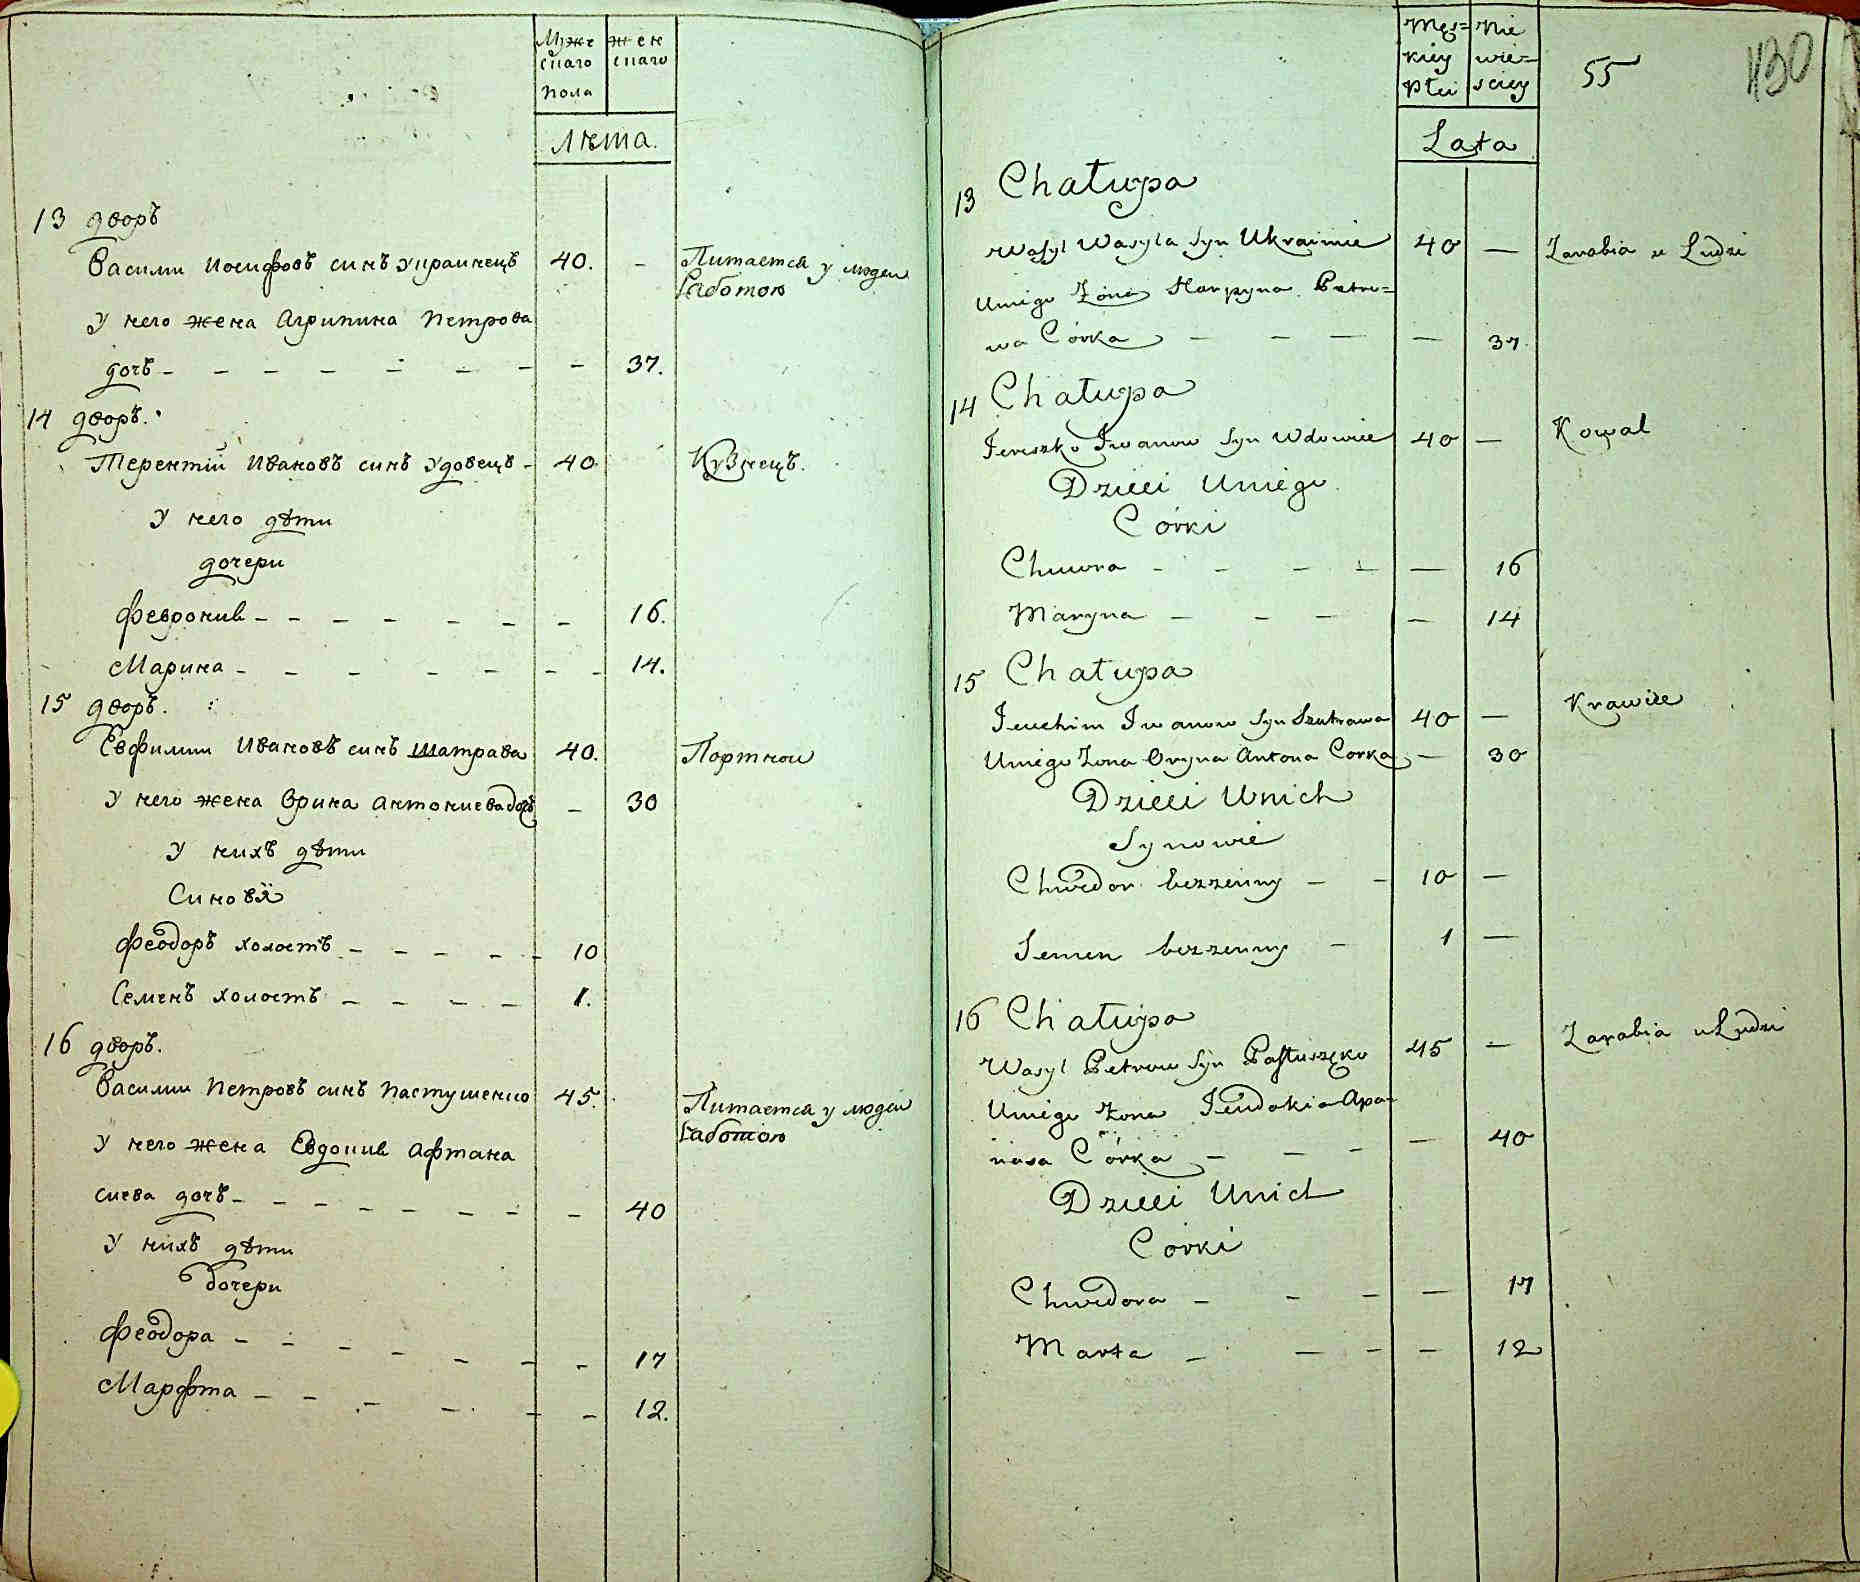 Мужескаго пола
женскаго
Лѣта.
13 дворъ
Василии Иосифовъ синъ Украинецъ 40. - Питается у людеи работою
У него жена Агрипина Петрова
дочъ - - - - - - - - 37.
14 дворъ.
Терентій Ивановъ синъ Удовецъ - 40. Кузнецъ.
У него дѣти
дочери
Феврония - - - - - - - 16.
Марина - - - - - - - - 14.
15 дворъ.
Евфимии Ивановъ синъ Шатрава 40. Портнои
У него жена Ѳрина Антониева дочъ - 30
У нихъ дѣти
Синовя
Феодоръ холостъ - - - - - 10
Семенъ холостъ - - - - 1.
16 дворъ.
Василии Петровъ синъ Пастушенко 45. Питается у людеи работою
У него жена Евдокия Афтана
сиева дочъ - - - - - - - - 40
У нихъ дѣти
дочери
Феодора - - - - - - - 17
Марфта - - - - - - 12.
Męs=
kiey
Płci
Nie
wie=
sciey
55
130
Lata
13 Chałupa
Wasyl Wasyla Syn Ukrainiec 40 — Zarabia u Ludzi
Uniego Żona Harpyna Petro=
wa Córka — — — — 37.
14 Chałupa
Tereszko Iwanow Syn Wdowiec 40 — Kowal
Dzieci Uniego
Córki
Chiwra - - - - — 16
Maryna - - - — 14
15 Chałupa
Jeuchim Iwanow Syn Szatrawa 40 — Krawiec
Uniego Zona Oryna Antona Corka — 30
Dzieci Unich
Synowie
Chwedor bezzenny - - 10 —
Semen bezzenny - 1 —
16 Chałupa
Wasyl Petrow Syn Pastuszęko 45 — Zarabia u Ludzi
Uniego Zona Jeudokia Apa=
nasa Córka - - - — 40
Dzieci Unich
Córki
Chwedora - - - — 17
Marta - - - — 12